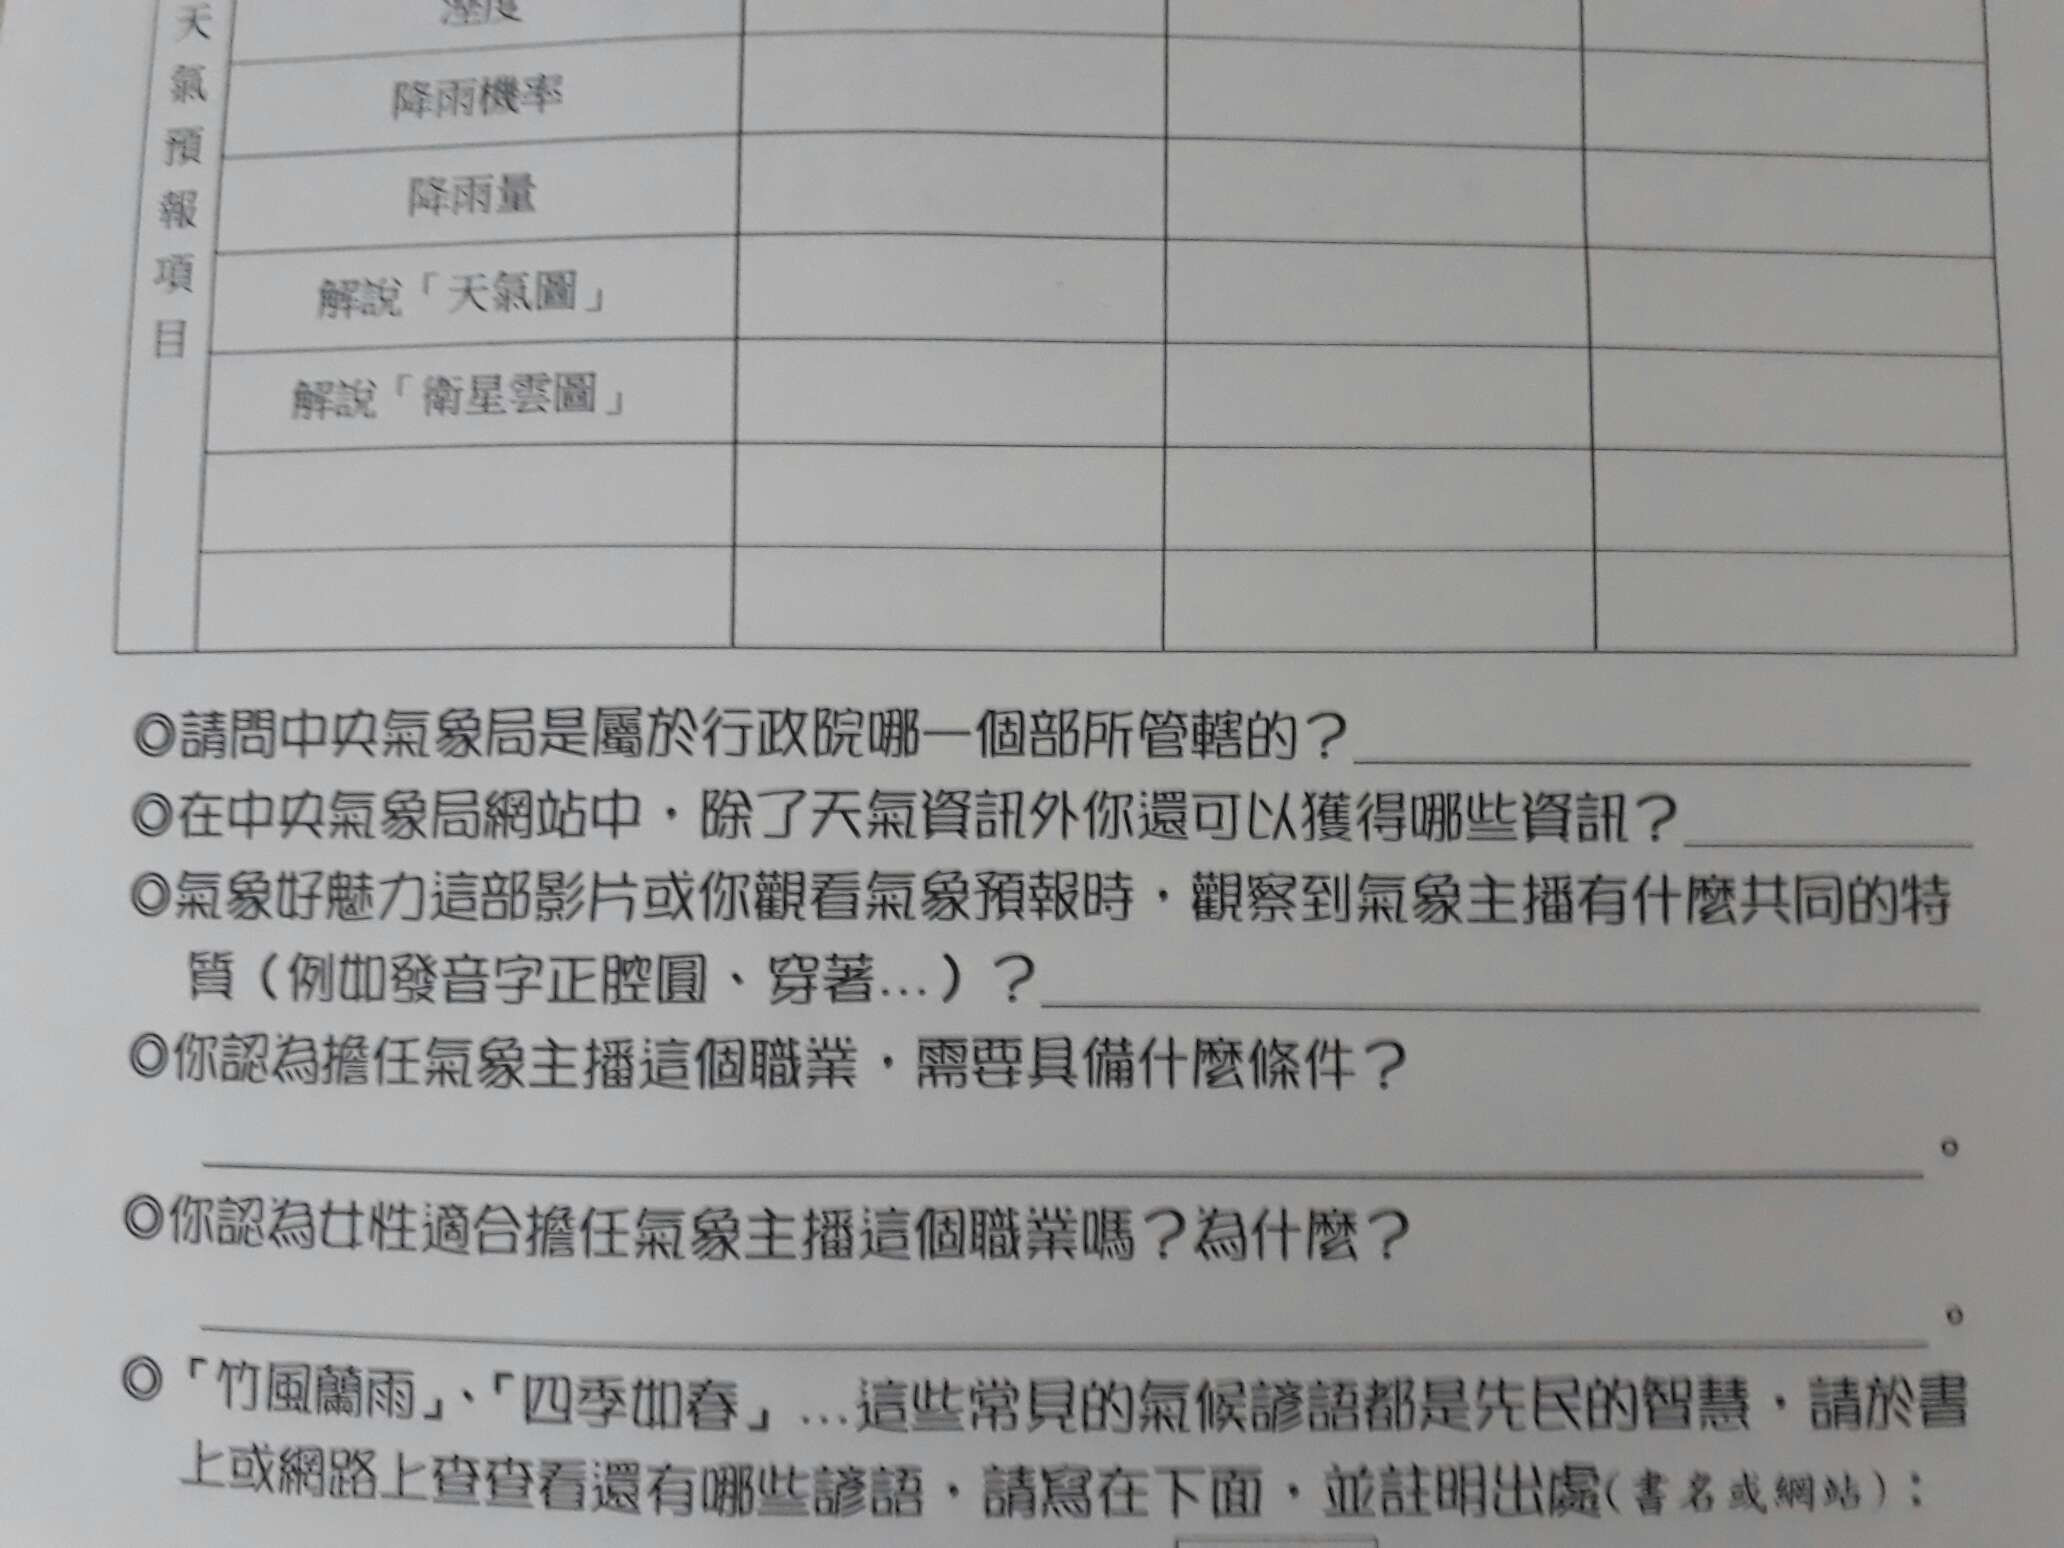 天氣預報項目
溼度
降雨機率
降雨量
解說「天氣圖」
解說「衛星雲圖」
◎請問中央氣象局是屬於行政院哪一個部所管轄的？
◎在中央氣象局網站中，除了天氣資訊外你還可以獲得哪些資訊？
◎氣象好魅力這部影片或你觀看氣象預報時，觀察到氣象主播有什麼共同的特
質（例如發音字正腔圓、穿著...）？
◎你認為擔任氣象主播這個職業，需要具備什麼條件？
。
◎你認為女性適合擔任氣象主播這個職業嗎？為什麼？
。
◎「竹風蘭雨」、「四季如春」...這些常見的氣候諺語都是先民的智慧，請於書
上或網路上查查看還有哪些諺語，請寫在下面，並註明出處(書名或網站)：